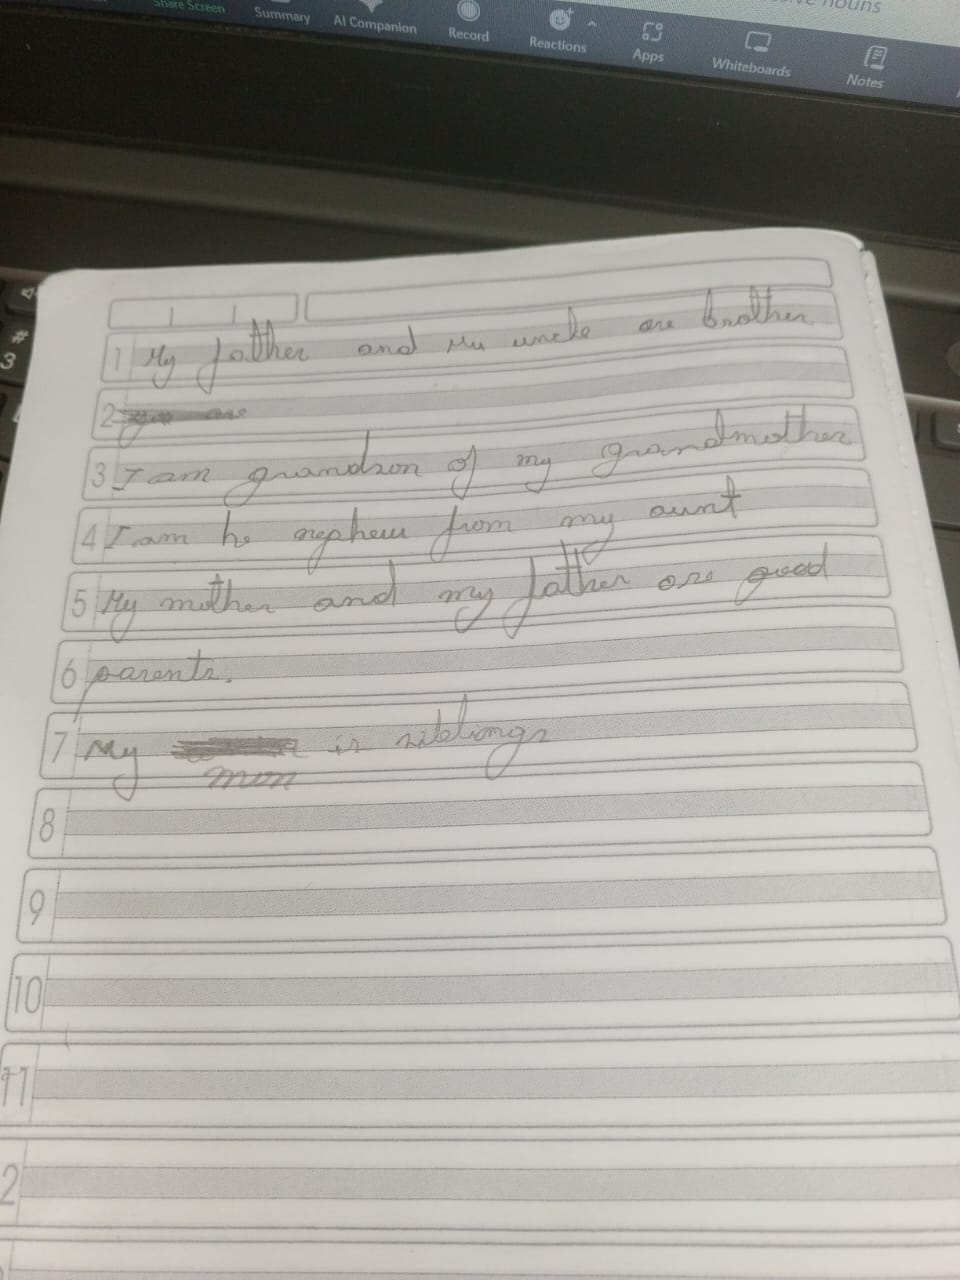 Share Screen Summary AI Companion Record Reactions Apps Whiteboards Notes
nouns
3
#
1 My father and Mu uncle are brother.
2
3 I am grandson of my grandmother
4 I am he nephew from my aunt
5 My mother and my father are good
6 parents.
7 My is siblings
mom
8
9
10
11
2